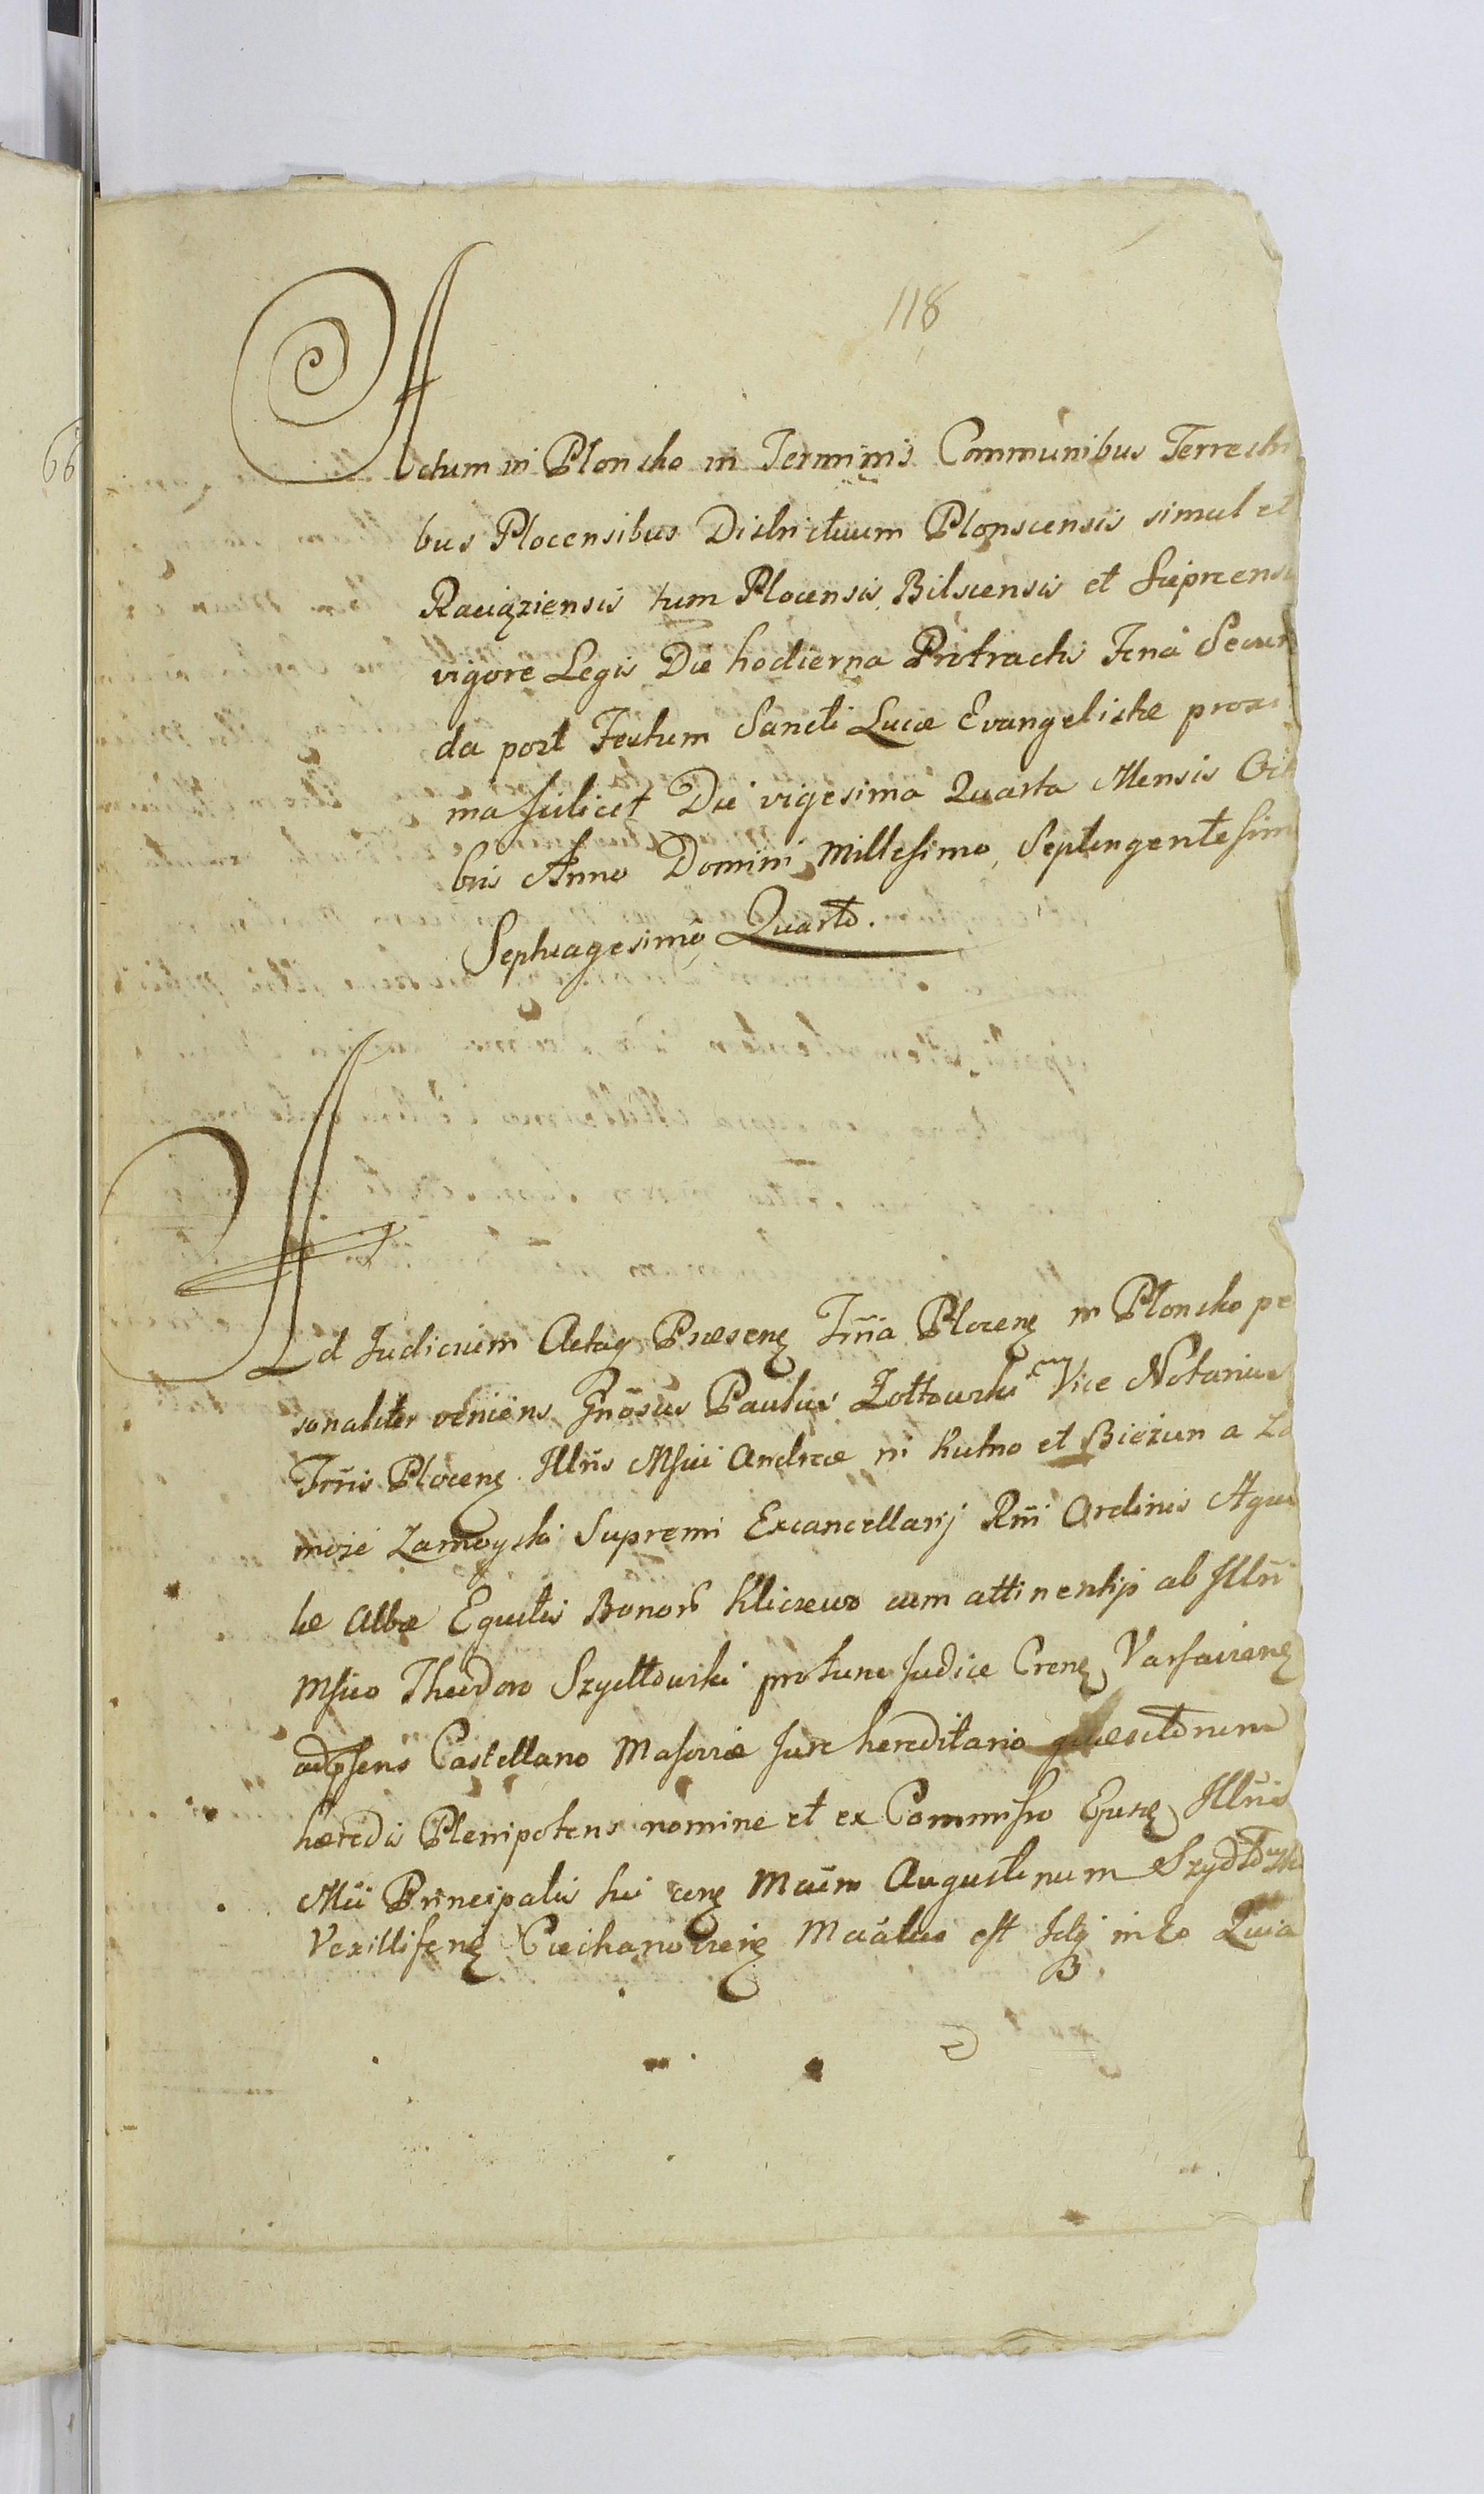 118
66
Actum in Plonsko in Terminis Communibus Terrestri
bus Plocensibus Districtuum Plonscensis simul et
Raciąziensis tum Plocensis Bilscensis et Sieprcensi
vigore Legis Die hodierna Protractis Feria Secun
da post Festum Sancti Lucæ Evangelistæ proxi
ma scilicet Die vigesima Quarta Mensis Octo
bris Anno Domini Millesimo Septingentesimo
Septuagesimo Quarto.
Ad Judicium Actaq Præsenę Trria Plocenę in Plonsko per
sonaliter veniens Gnosus Paulus Zołtowski Vice Notarius
Trris Plocenę Illris Mfici Andreæ in Kutno et Bieżun a Za
moście Zamoyski Supremi Excancellarij Rni Ordinis Aqui
læ Albæ Equitis Bonorum Kliczewo cum attinentijs ab Illri
Mfico Theodoro Szydłowski protunc Judice Crenę Varsavienę
adpsens Castellano Masoviæ Jure hereditario quæsitorum
hæredis Plenipotens nomine et ex Commisso Ejusdę Illris
Mfici Principalis sui Augustinum Szydłowski
Vexilliferę Ciechanovienę est Idq in eo Quia
B